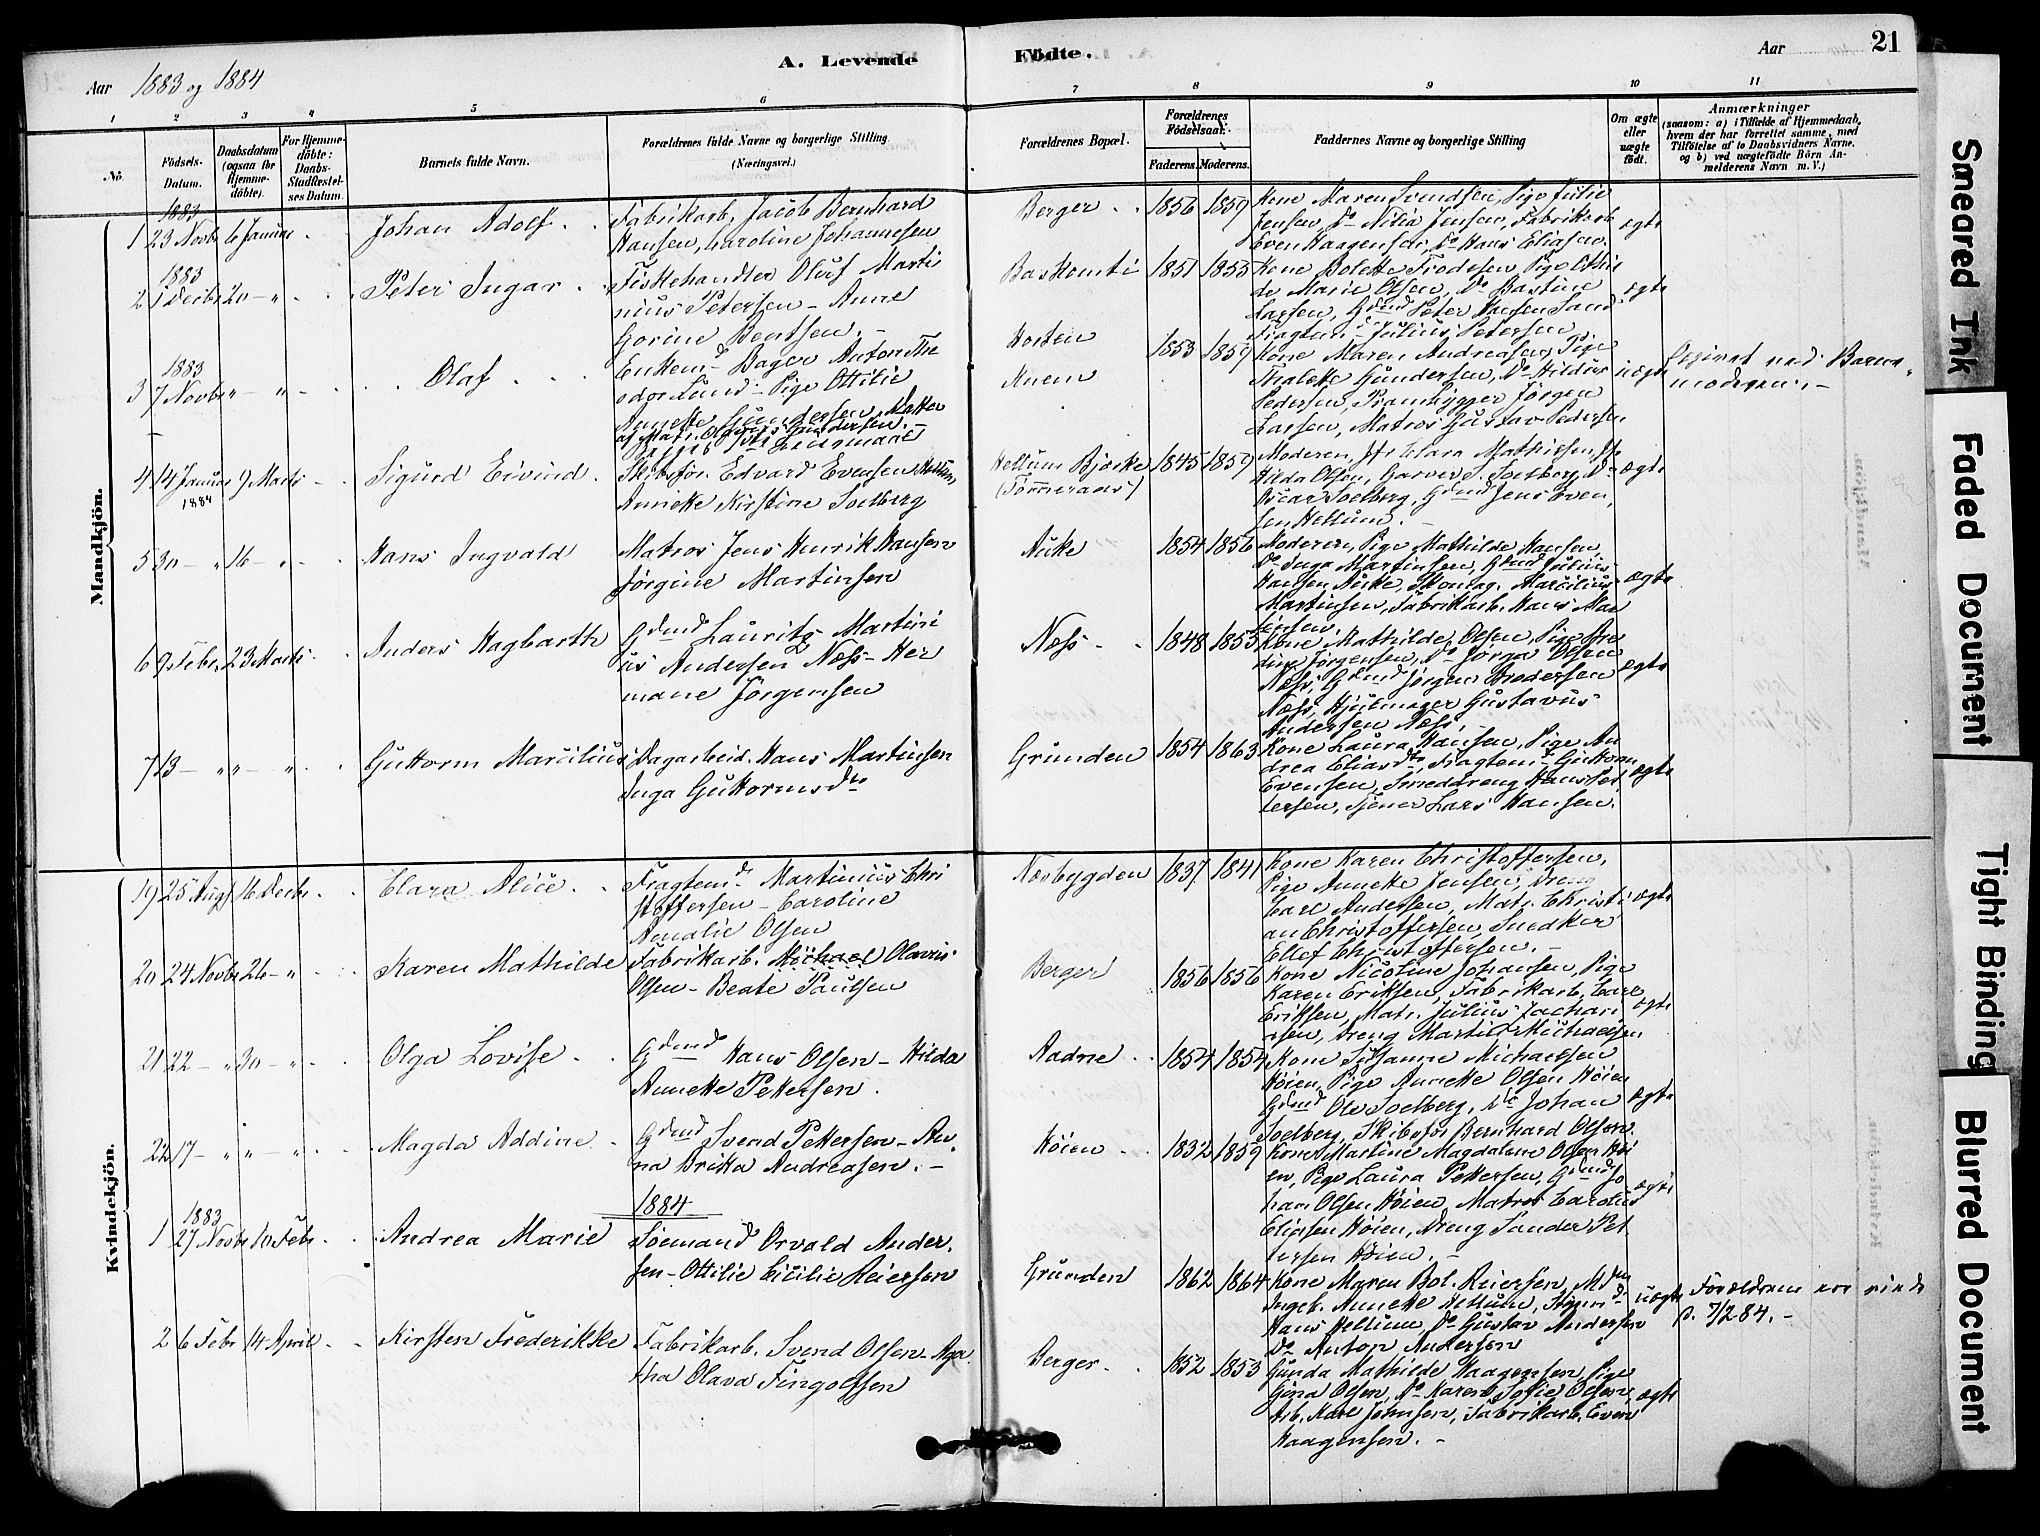 Aar 1883 og 1884
A. Levende
Fødte.
Aar
21
1 2 3 4 5 6 7 8 9 10 11
No.
Fødsels-
Datum.
Daabsdatum
(ogsaa for
Hjemme-
døbte).
For Hjemme-
døbte:
Daabs-
Stadfæstel-
ses Datum.
Barnets fulde Navn.
Forældrenes fulde Navne og borgerlige Stilling
(Næringsvei.)
Forældrenes Bopæl.
Forældrenes
Fødselsaar.
Faderens. Moderens.
Faddernes Navne og borgerlige Stilling
Om ægte
eller
uægte
født.
Anmærkninger
(saasom: a) i Tilfælde af Hjemmedaab,
hvem der har forrettet samme, med
Tilføielse af to Daabsvidners Navne.
og b) ved uægtefødte Børn An-
melderens Navn m. V.)
Mandkjön.
1883
1 23 Novbr 6 Januar
Johan Adolf
Fabrikarb. Jacob Bernhard
Hansen, Caroline Johannesen
Berger 1856 1859
Kone Maren Svendsen, Pige Julie
Jensen, Do Nilia Jensen, Fabrikarb
Even Haagensen, Do Hans Eliasen.
ægte
1883
2 1 Decbr 20 - "
Peter Ingar
Fiskehandler Oluf Marti
nius Petersen - Anne
Gorine Bentsen.-
1851 1855
Kone Bolette Frodesen, Pige Othi
de Marie Olsen, Do Bastine
Larsen, Gdmd Peter Hansen Sand
Fragtmd Julius Petersen
ægte
1883
3 7 Novbr " - "
Olaf
Enkem. Bager Anton The
odor Lund - Pige Ottilie
Annette Gundersen, Datter
af Matr. Gundersen
Horten
Knem
1853 1859
Kone Maren Andreasen, Pige
Thalette Gundersen, Do Hildur
Pedersen, Prambygger Jørgen
Larsen, Matros Gustav Pedersen
uægte
ved Barne-
moderen. -
4 14 Januar 9 Marts
1884
Sigurd Eivind
Skibsfør. Edvard Evensen Hellum,
Annette Kirstine Solberg
Hellum Bjerke
1845 1859
Moderen, Jfr Clara Mathisen, Jfr
Hilda Olsen, Garver S. Solberg, Do
Oscar Solberg, Gdmd Jens Even
sen Hellum. -
ægte
5 30 - " 16 - "
Hans Ingvald
Matros Jens Henrik Hansen
Jørgine Martinsen
Auke 1854 1856
Moderen, Pige Mathilde Hansen,
Do Inga Martinsen, Gdmd Julius
Hansen Auke, Skomag. Marcilius
Martinsen, Fabrikarb. Hans Mar
tinsen.
ægte
6 9 Febr. 23 Marts
Anders Hagbarth
Gdmd Lauritz Martini
us Andersen Næss - Her
mane Jørgensen
Næss 1848 1855
Kone Mathilde Olsen, Pige Are
dine Jørgensen, Do Jørga Olsen
Næss, Gdmd Jørgen Andersen
Næss, Hjulmager Gustavus
Andersen Næss.
ægte
7 13 - " " - "
Guttorm Marcilius
Dagarbeid. Hans Martinsen
Inga Guttormsdtr
Grunden 1854 1863
Kone Laura Hansen, Pige An
drea Eliasdtr, Fragtemd Guttorm
Evensen, Smeddreng Hans Pet
tersen, Tjener Lars Hansen.
ægte
Kvindekjön.
19 25 Augs 16 Decbr.
Clara Alice
Fragtemd. Martinius Chri
stoffersen - Caroline
Amalie Olsen
Nesbygden 1837 1841
Kone Karen Christoffersen,
Pige Annette Jensen, Dreng
Carl Andersen, Matr. Christi
an Christoffersen, Snedker
Ellef Christoffersen. -
ægte
20 24 Novbr 26 - "
Karen Mathilde
Fabrikarb. Michael Olavus
Olsen - Beate Paulsen
Berger 1856 1856
Kone Nicoline Johansen, Pige
Karen Eriksen, Fabrikarb. Carl
Eriksen, Matr. Julius Zachari
asen, Dreng Martin Michaelsen
ægte
21 22 - " 30 - "
Olga Lovise
Gdmd Hans Olsen - Hilda
Annette Pettersen.
Aadne 1854 1854
Kone Susanne Michaelsen
Høien, Pige Annette Olsen Høien
Gdmd Ole Solberg, Do Johan
Solberg, Skibsfør Bernhard Olsen.
ægte
22 17 - " " - "
Magda Addine
Gdmd Svend Pettersen - An
na Dritta Andreasen. -
Høien 1832 1859
Kone Martine Magdalene Olsen Høi
en, Pige Laura Pettersen, Gdmd Jo
han Olsen Høien, Matros Carolus
Eliasen Høien, Dreng Sander Pet
tersen Høien. -
ægte
1884
1883
1 27 Novbr 10 Febr.
Andrea Marie
Sømand Orvald Ander
sen - Ottilie Cicilie Reiersen
Grunden 1862 1864
Kone Maren Bol. Reiersen, Mdm
Ingeb. Annette Hellum, Styrmd
Hans Hellum, Do Gustav Andersen
Do Anton Andersen
uægte
Forældrene ere viede
d. 7/2 84. -
2 6 Febr 14 April
Kirsten Frederikke
Fabrikarb. Svend Olsen - Aga
tha Olava Fingolfsen
Berger 1852 1853
Gunda Mathilde Haagensen, Pige
Gina Olsen, Do Karen Sofie Olsen,
Arb. Karl Johnsen, Fabrikarb. Even
Haagensen. -
ægte
Smeared Ink
Faded Document
Tight Binding
Blurred Document